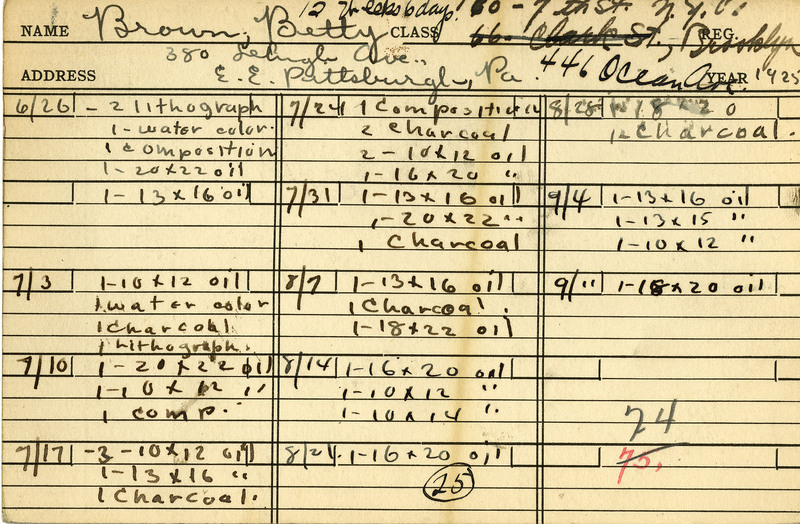 12 weeks 6 days! 60 - 7th St. N.Y.C.
NAME Brown, Betty CLASS 66 Clark St., Brooklyn REG.
380 Lehigh Ave.,
ADDRESS E. E. Pittsburgh, Pa. 446 Ocean Ave. YEAR 1925
6/26 - 2 lithograph
1 - water color.
1 composition
1 - 20x22 oil
1 - 13x16 oil
7/3 1 - 10x12 oil
1 water color
1 charcoal
1 lithograph.
7/10 1 - 20x22 oil
1 - 10x12 "
1 comp.
7/17 - 3 - 10x12 oil
1 - 13x16 "
1 Charcoal.
7/24 1 Composition
2 Charcoal
2 - 10x12 oil
1 - 16x20 "
7/31 1 - 13x16 oil
1 - 20x22 "
1 Charcoal
8/7 1 - 13x16 oil
1 Charcoal.
1 - 18x22 oil
8/14 1 - 16x20 oil
1 - 10x12 "
1 - 10x14 "
8/21. 1 - 16x20 oil
25
8/28 1 - 18x20
1 Charcoal.
9/4 1 - 13x16 oil
1 - 13x15 "
1 - 10x12 "
9/11 1 - 18x20 oil
74
75.